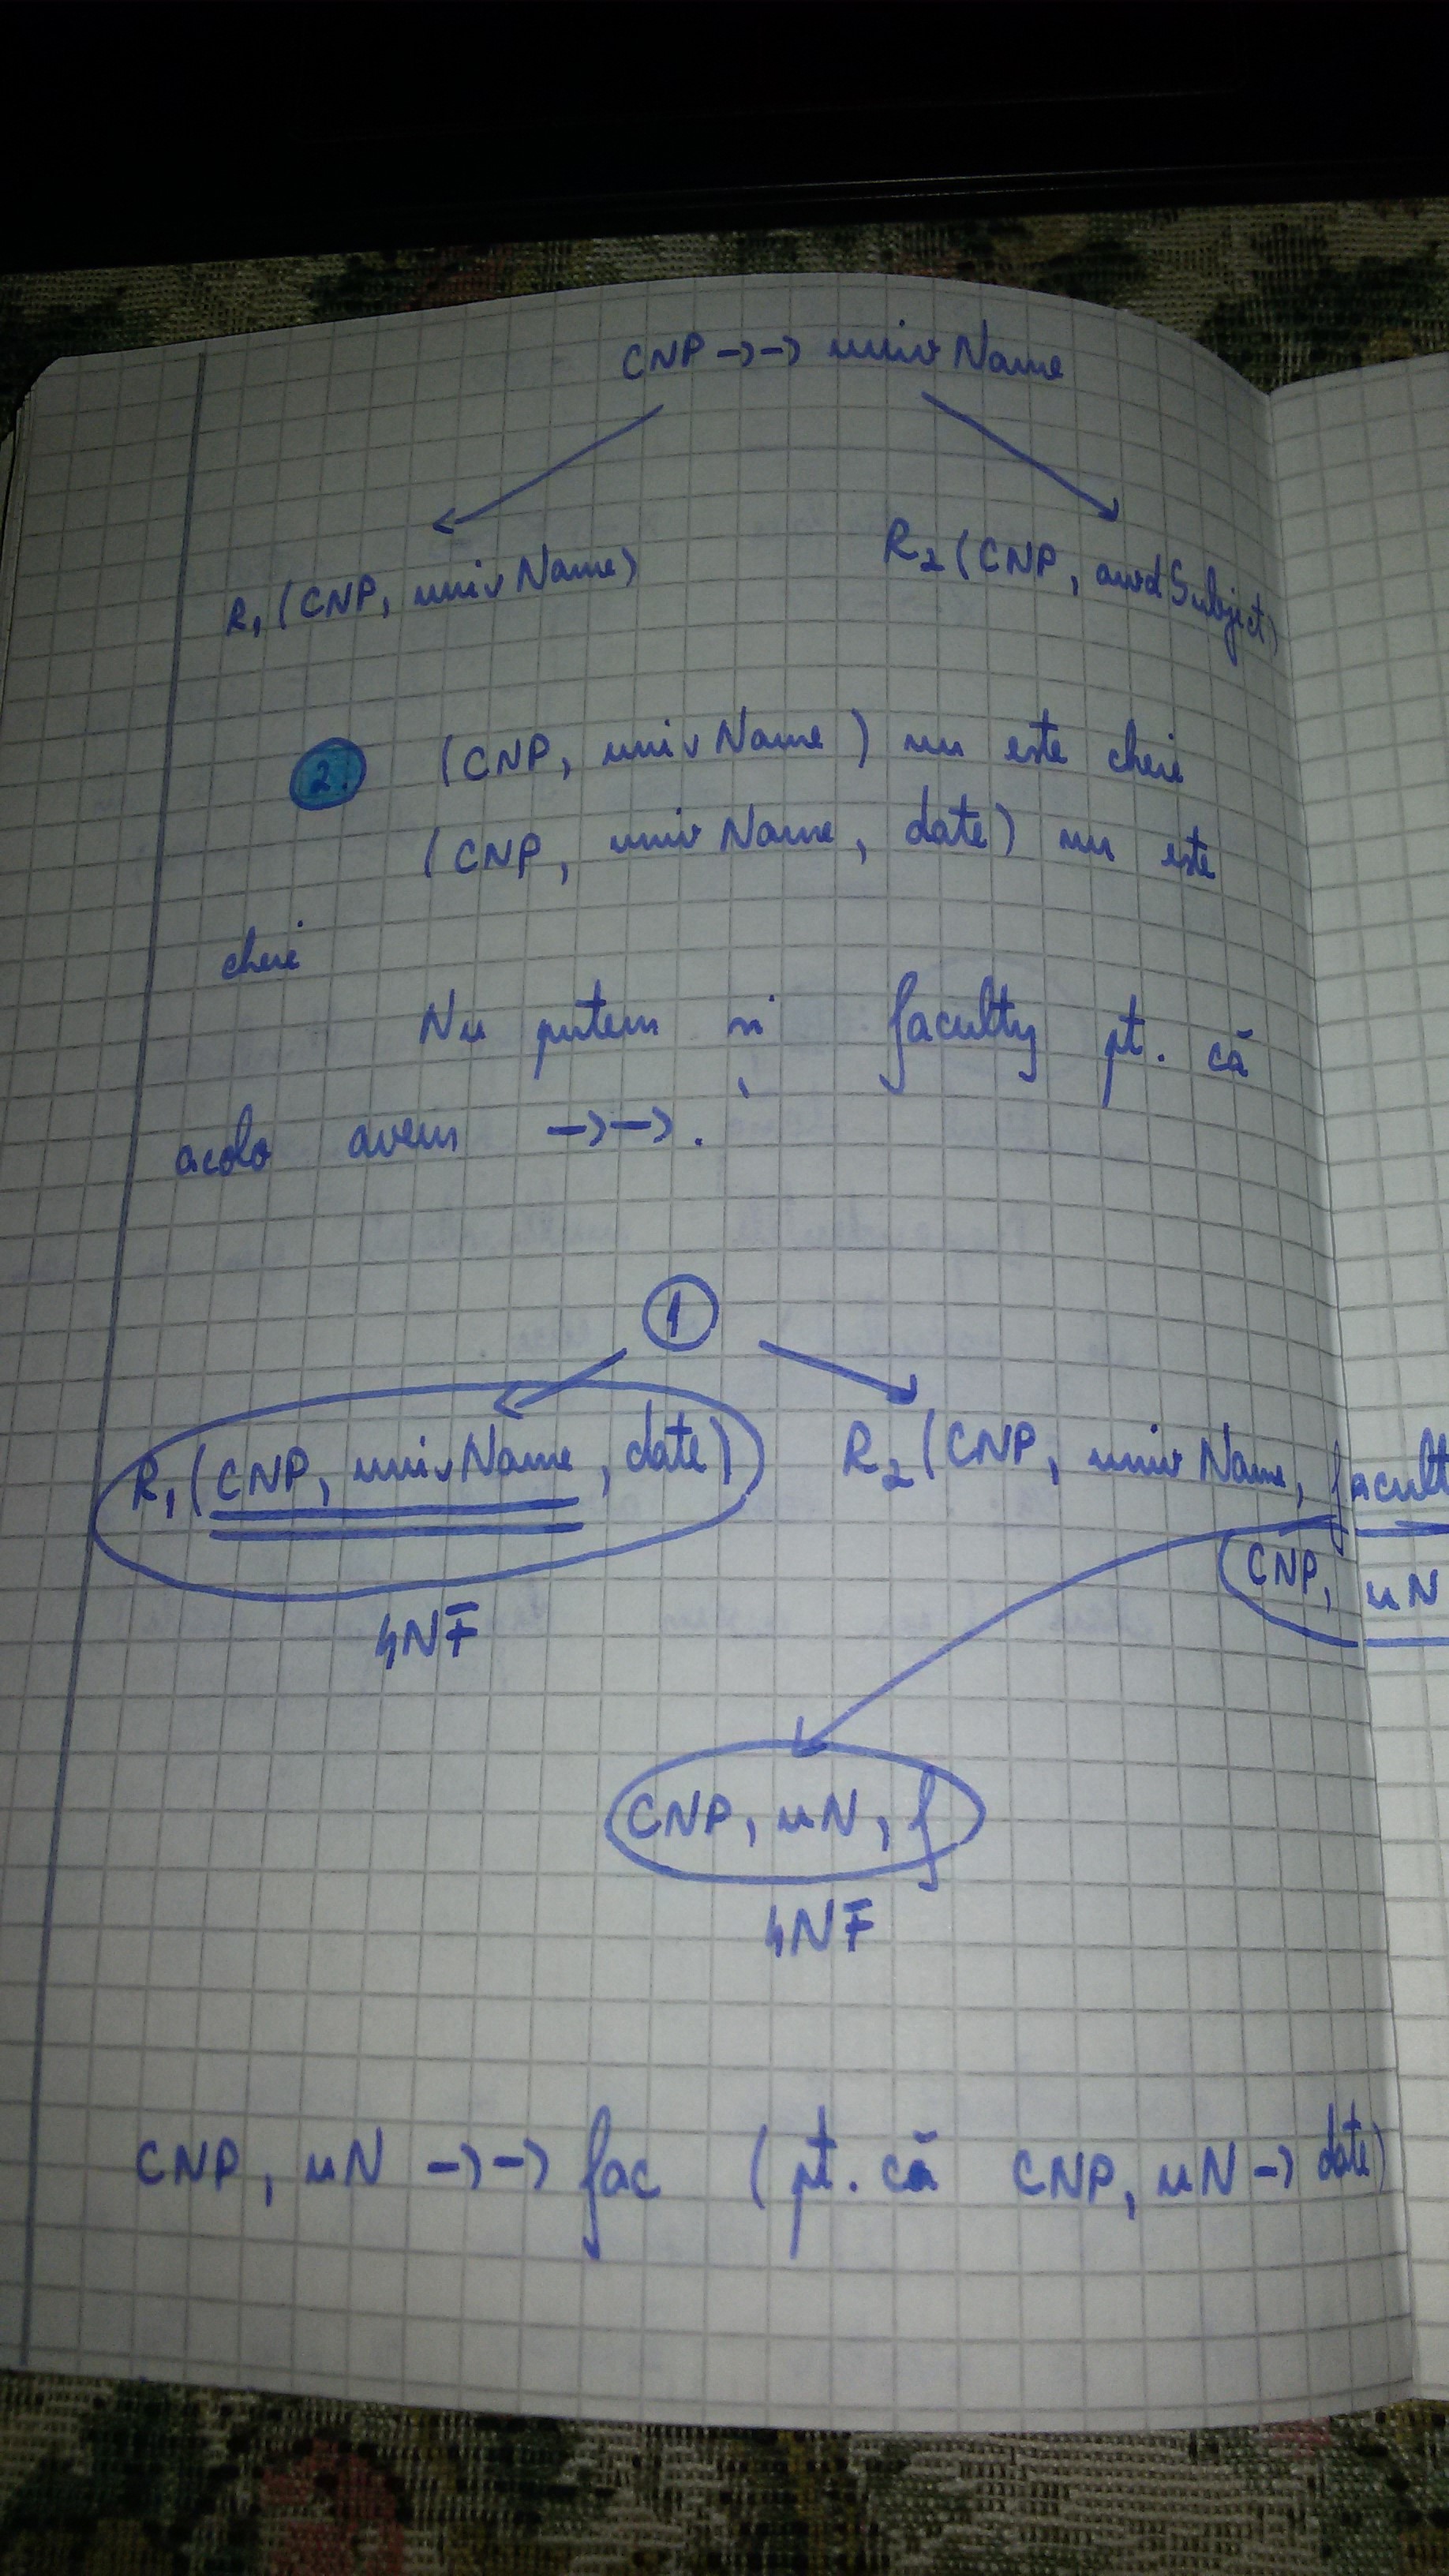 CNP →→ univName
R₁(CNP, univName) R₂(CNP, awdSubject)
2. (CNP, univName) nu este cheie
(CNP, univName, date) nu este
cheie
Nu putem și faculty pt. că
acolo avem →→.
1
R₁(CNP, univName, date) R₂(CNP, univName, facult
CNP, uN
4NF
CNP, uN, f
4NF
CNP, uN →→ fac (pt. că CNP, uN → date)